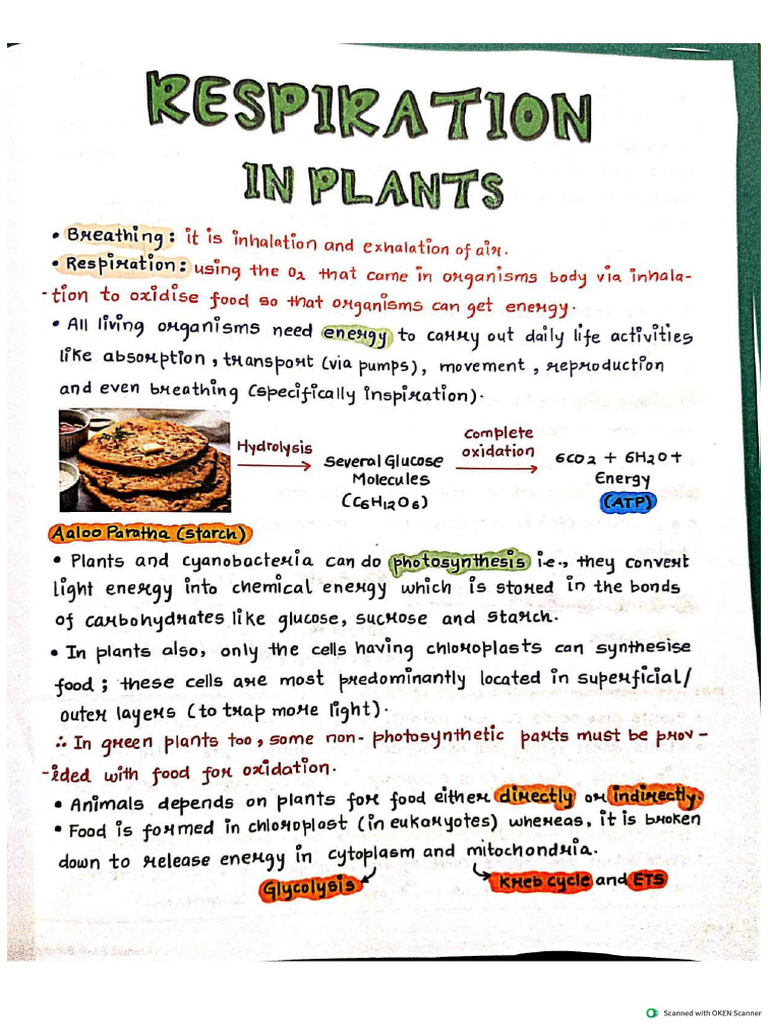 RESPIRATION
IN PLANTS
• Breathing: it is inhalation and exhalation of air.
• Respiration: using the O2 that came in organisms body via inhala-
-tion to oxidise food so that organisms can get energy.
• All living organisms need energy to carry out daily life activities
like absorption, transport (via pumps), movement, reproduction
and even breathing (specifically inspiration).
Hydrolysis
Several Glucose
Molecules
(C6H12O6)
complete
oxidation
6CO2 + 6H2O +
Energy
(ATP)
Aaloo Paratha (starch)
• Plants and cyanobacteria can do photosynthesis i.e., they convert
light energy into chemical energy which is stored in the bonds
of carbohydrates like glucose, sucrose and starch.
• In plants also, only the cells having chloroplasts can synthesise
food; these cells are most predominantly located in superficial/
outer layers (to trap more light).
∴ In green plants too, some non-photosynthetic parts must be prov-
-ided with food for oxidation.
• Animals depends on plants for food either directly or indirectly.
• Food is formed in chloroplast (in eukaryotes) whereas, it is broken
down to release energy in cytoplasm and mitochondria.
Glycolysis
Kreb cycle and ETS
Scanned with OKEN Scanner